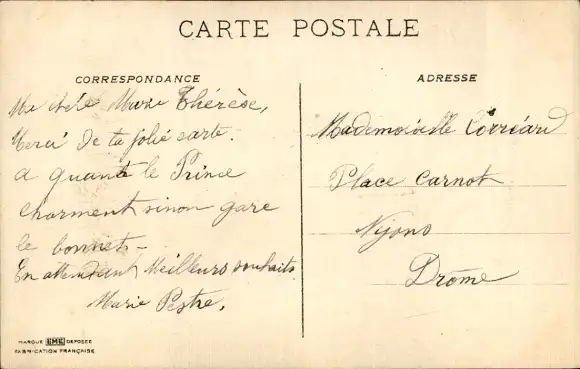 CARTE POSTALE
CORRESPONDANCE
Ma chère Marie Thérèse,
Merci de ta jolie carte.
a quante le Prince
charment sinon gare
le bonnet -
En attendant Meilleurs souhaits
Marie Pestre.
MARQUE EME DEPOSÉE
FABRICATION FRANÇAISE
ADRESSE
Mademoiselle
Place Carnot
Nyons
Drôme